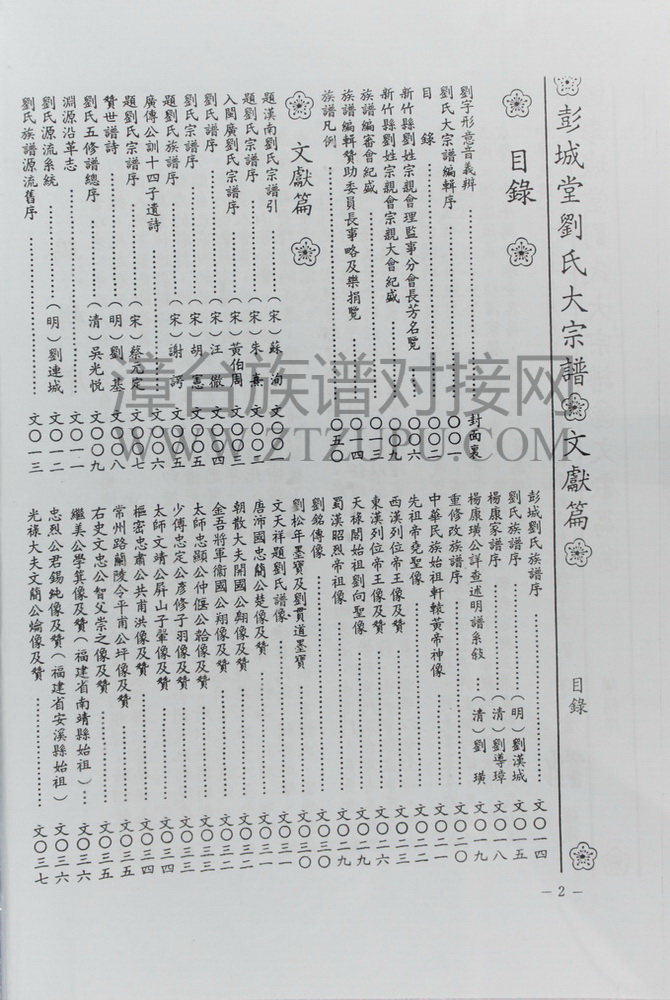 彭城堂劉氏大宗譜 文獻篇
目錄
－2－
目錄
劉字形意音義辨……封面裏
劉氏大宗譜編輯序……〇〇一
目錄……〇〇二
新竹縣劉姓宗親會理監事分會長芳名覽……〇〇六
新竹縣劉姓宗親會宗親大會紀盛……〇〇九
族譜編審會紀盛……〇一三
族譜編輯贊助委員長事略及樂捐覽……〇一四
族譜凡例……〇五〇
文獻篇
題漢南劉氏宗譜引……（宋）蘇洵 文〇〇一
題劉氏宗譜序……（宋）朱熹 文〇〇二
入閩廣劉氏宗譜序……（宋）黃伯周 文〇〇三
劉氏譜序……（宋）汪徹 文〇〇四
劉氏宗譜序……（宋）胡憲 文〇〇五
題劉氏族譜序……（宋）謝諤 文〇〇五
廣傳公訓十四子遺詩……文〇〇六
題劉氏宗譜序……（宋）蔡元定 文〇〇七
贊世譜詩……（明）劉基 文〇〇八
劉氏五修譜總序……（清）吳光悅 文〇〇九
淵源沿革志……文〇一一
劉氏源流系統……（明）劉連城 文〇一二
劉氏族譜源流舊序……文〇一三
彭城劉氏族譜序……文〇一四
劉氏族譜序……（明）劉漢城 文〇一五
楊康家譜序……（清）劉導璋 文〇一八
楊康璜公詳查述明譜系敍……（清）劉璜 文〇一九
重修改族譜序……文〇二〇
中華民族始祖軒轅黃帝神像……文〇二一
先祖帝堯聖像……文〇二二
西漢列位帝王像及贊……文〇二三
東漢列位帝王像及贊……文〇二六
天祿閣始祖劉向聖像……文〇二九
蜀漢昭烈帝祖像……文〇二九
劉銘傳像……文〇三〇
劉松年墨寶及劉貫道墨寶……文〇三〇
文天祥題劉氏譜像……文〇三一
唐沛國忠簡公楚像及贊……文〇三一
朝散大夫開國公翺像及贊……文〇三二
金吾將軍衞國公翔像及贊……文〇三二
太師忠顯公仲偃公韐像及贊……文〇三三
少傅忠定公彥修子羽像及贊……文〇三三
太師文靖公屏山子翬像及贊……文〇三四
樞密忠肅公共甫洪像及贊……文〇三四
常州路蘭陵令平甫公坪像及贊……文〇三五
右史文忠公智父崇之像及贊……文〇三五
繼美公學箕像及贊（福建省南靖縣始祖）……文〇三六
忠烈公君錫純像及贊（福建省安溪縣始祖）……文〇三六
光祿大夫文簡公爚像及贊……文〇三七
漳台族谱对接网
WWW.ZTZUPU.COM